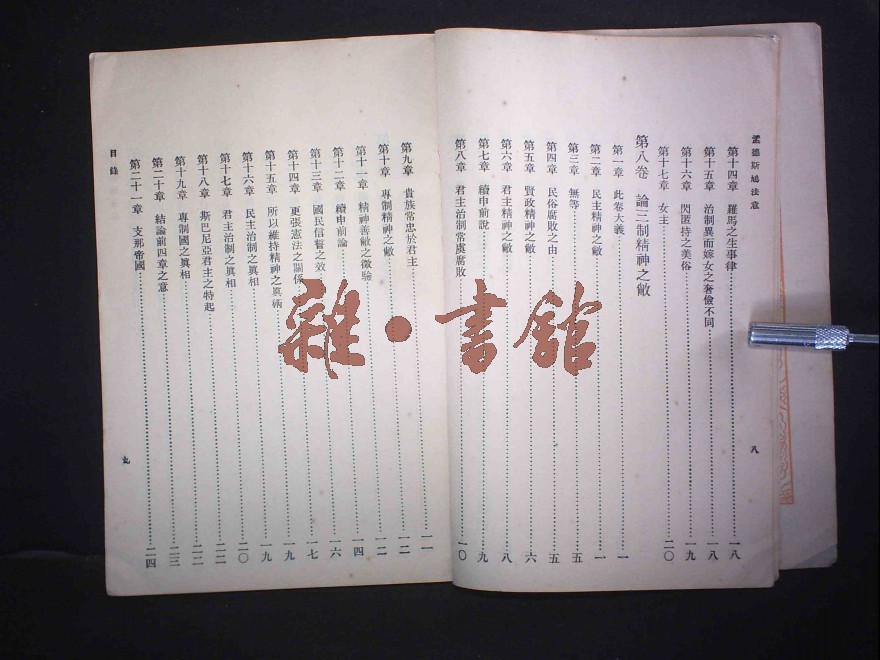 孟德斯鳩法意
第十四章 羅馬之生事律 一八
第十五章 治制異而嫁女之奢儉不同 一八
第十六章 閃匿持之美俗 一九
第十七章 女主 二〇
第八卷 論三制精神之敝
第一章 此卷大義 一
第二章 民主精神之敝 一
第三章 無等 五
第四章 民俗腐敗之由 五
第五章 賢政精神之敝 六
第六章 君主精神之敝 八
第七章 續申前說 九
第八章 君主治制常虞腐敗 一〇
八
第九章 貴族常忠於君主 一一
第十章 專制精神之敝 一二
第十一章 精神善敝之徵驗 一四
第十二章 續申前論 一六
第十三章 國民信誓之效 一七
第十四章 更張憲法之關係 一九
第十五章 所以維持精神之真術 一九
第十六章 民主治制之真相 二〇
第十七章 君主治制之真相 二二
第十八章 斯巴尼亞君主之特起 二二
第十九章 專制國之真相 二三
第二十章 結論前四章之意 二三
第二十一章 支那帝國 二四
目錄
九
雜·書館